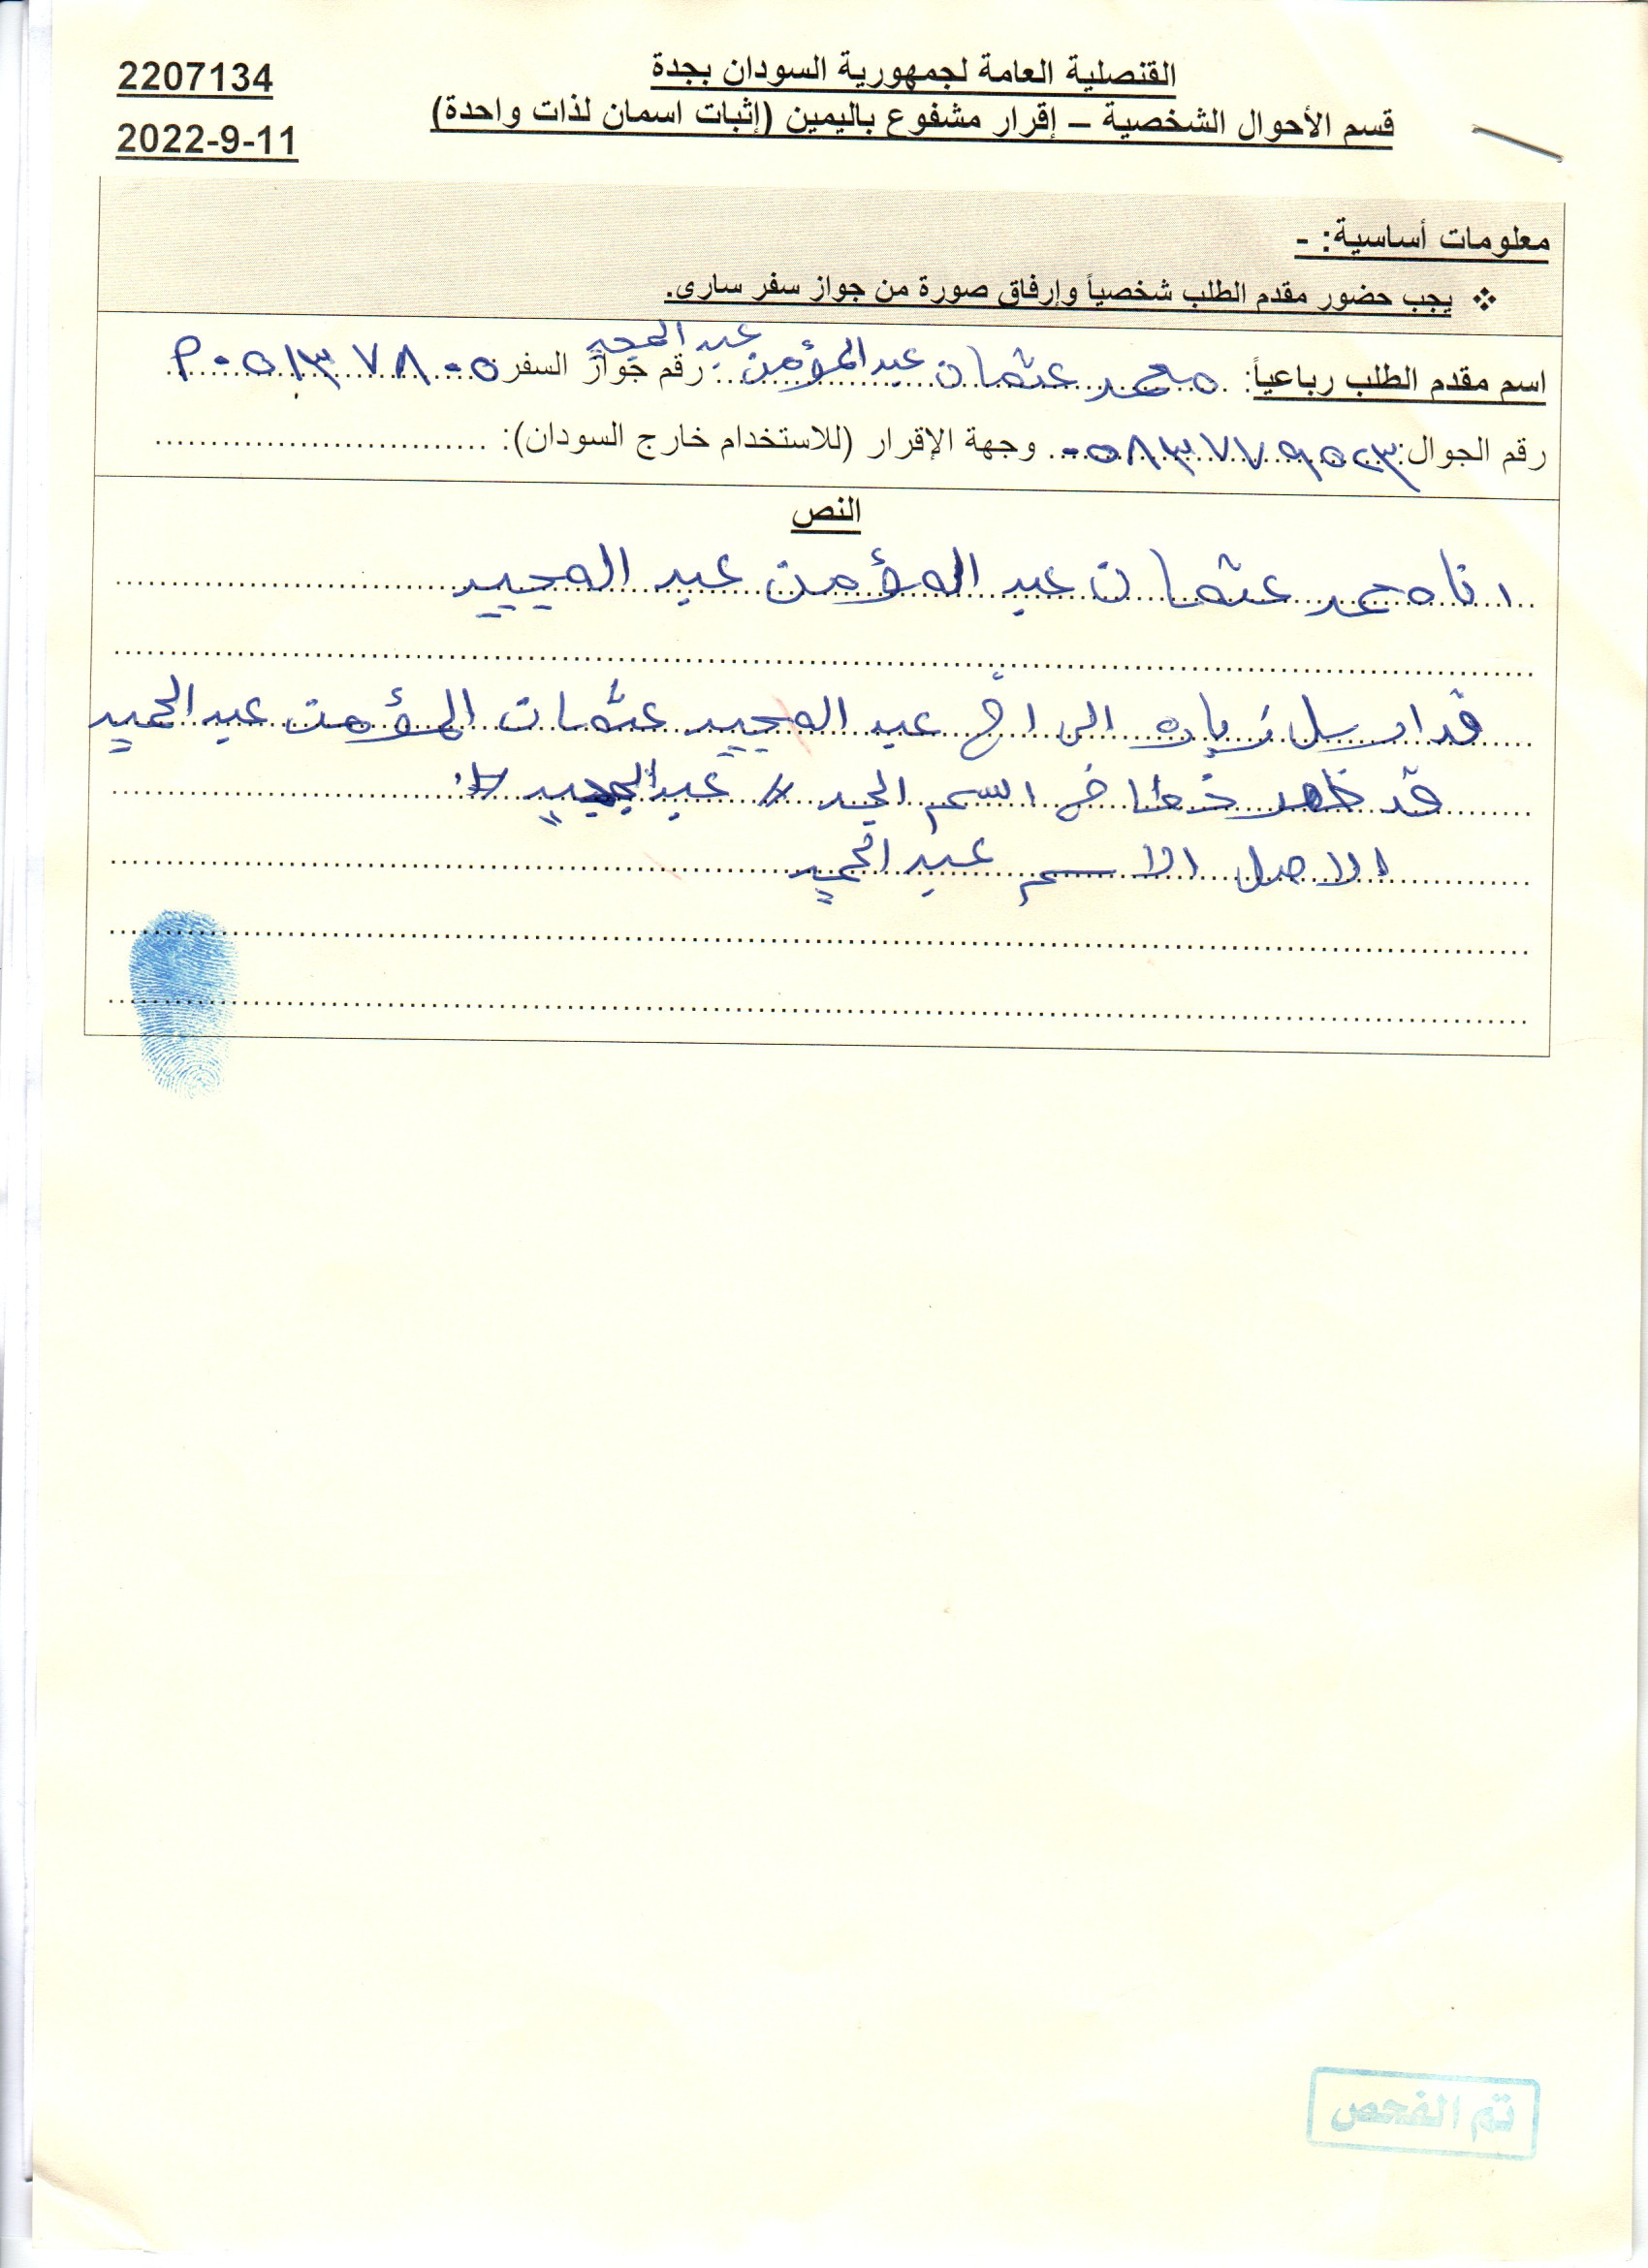 القنصلية العامة لجمهورية السودان بجدة
2207134
قسم الأحوال الشخصية – إقرار مشفوع باليمين (إثبات اسمان لذات واحدة)
2022-9-11
معلومات أساسية: -
❖ يجب حضور مقدم الطلب شخصياً وإرفاق صورة من جواز سفر سارى.
اسم مقدم الطلب رباعياً: محمد عثمان عبد المؤمن عبد المجيد رقم جواز السفر P٠٥١٣٧٨٠٥
رقم الجوال: ٠٥٨٣٧٧٩٥٢٣ وجهة الإقرار (للاستخدام خارج السودان):
النص
انا محمد عثمان عبد المؤمن عبد المجيد
قد ارسل زياره الى اخ عبد المجيد عثمان المؤمن عبد الحميد
قد ظهر خطا في اسم الجد // عبد المجيد //
الاصل الاسم عبد الحميد
تم الفحص